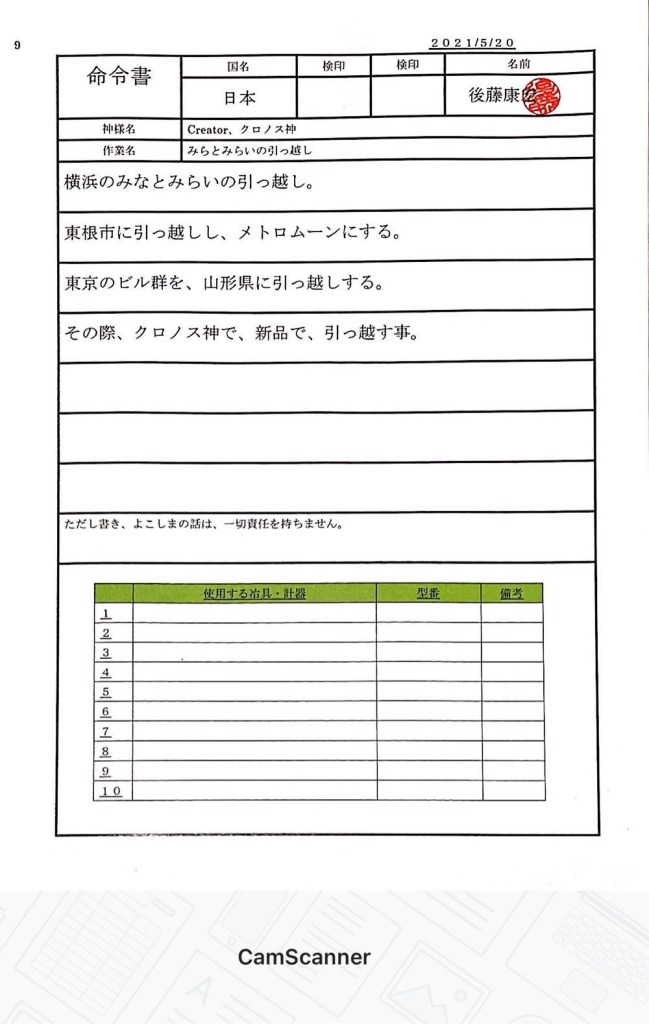 9
2021/5/20
命令書
国名
検印
検印
名前
日本
後藤康
神様名
Creator、クロノス神
作業名
みらとみらいの引っ越し
横浜のみなとみらいの引っ越し。
東根市に引っ越しし、メトロムーンにする。
東京のビル群を、山形県に引っ越しする。
その際、クロノス神で、新品で、引っ越す事。
ただし書き、よこしまの話は、一切責任を持ちません。
使用する冶具・計器
型番
備考
1
2
3
4
5
6
7
8
9
10
CamScanner